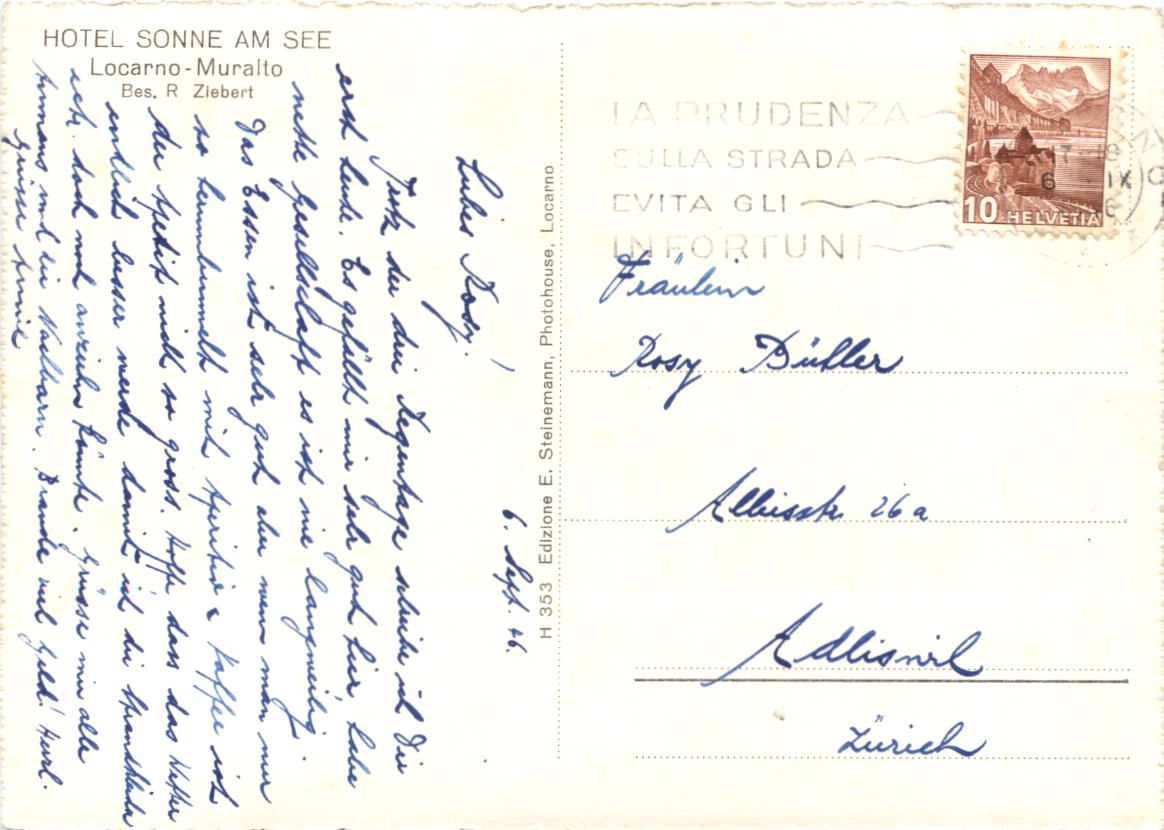 HOTEL SONNE AM SEE
Locarno-Muralto
Bes. R Ziebert
6. Sept. 46.
Liebes Rosy!
Trotz der drei Regentage schreibe ich Dir
erst heute. Es gefällt mir sehr gut hier, habe
nette Gesellschaft es ist nie langweilig.
Das Essen ist sehr gut aber wenn man nur
so herumbummelt mit Aperitiv & Kaffee ist
der Apetit nicht so gross. Hoffe dass das Wetter
endlich besser werde damit ich die Strandkleider
doch noch anziehn könnte. Grüsse mir alle
und die Nachbarn. Brauche viel Geld! Herzl.
Grüsse
H 353 Edizione E. Steinemann, Photohouse, Locarno
LA PRUDENZA
SULLA STRADA
EVITA GLI
INFORTUNI
17-18
6 IX
10 HELVETIA
Fräulein
Rosy Bühler
Albisstr. 26a
Adliswil
Zürich